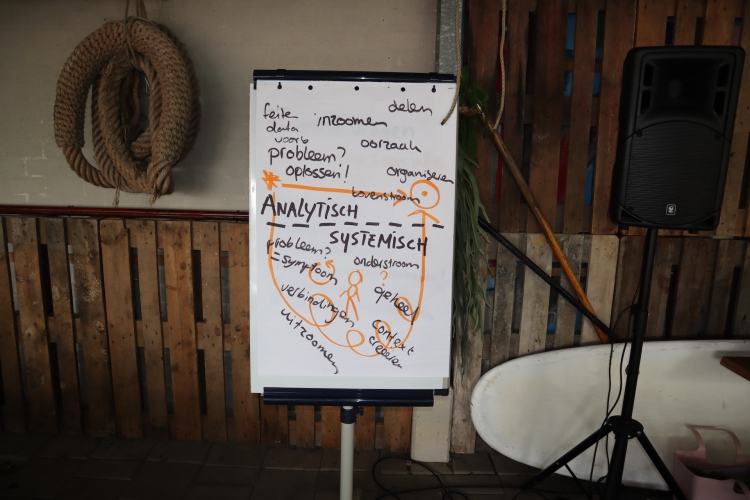 feiten
data
voorb
inzoomen
delen
oorzaak
probleem?
oplossen!
organiseren
bovenstroom
ANALYTISCH
SYSTEMISCH
probleem?
= symptoom
onderstroom
?
geheel
verbindingen
uitzoomen
context
creëren